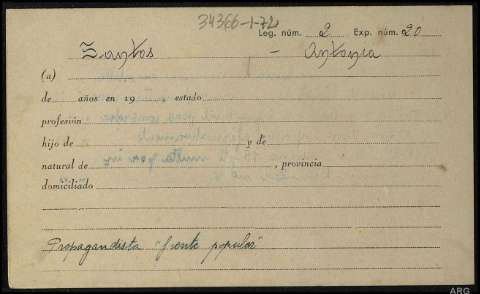 34366-1-72
Leg. núm. 2 Exp. núm. 20
Santos - Antonia
(a)
de años en 19 estado
profesión
hijo de y de
natural de , provincia
domiciliado
Propagandista "frente popular"
ARG